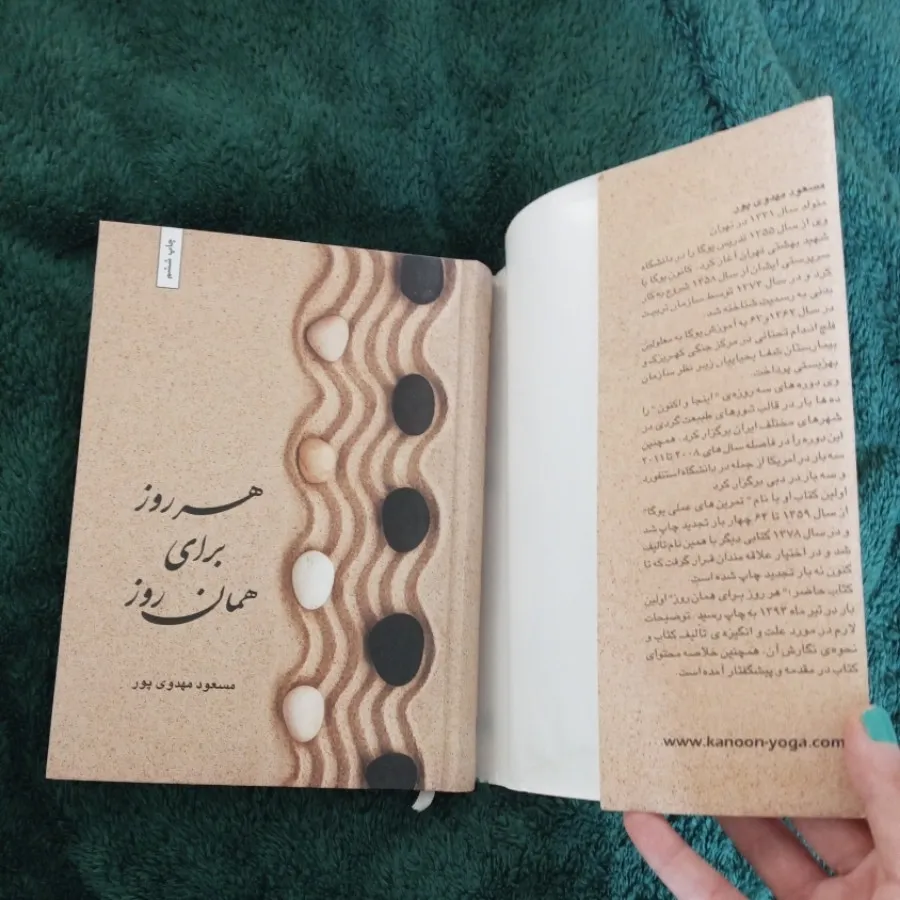 چاپ ششم
هر روز
برای
همان روز
مسعود مهدوی پور
مسعود مهدوی پور
متولد سال ۱۳۳۱ در تهران
وی از سال ۱۳۵۵ تدریس یوگا را در دانشگاه
شهید بهشتی تهران آغاز کرد. کانون یوگا با
سرپرستی ایشان از سال ۱۳۵۸ شروع به کار
کرد و در سال ۱۳۷۳ توسط سازمان تربیت
بدنی به رسمیت شناخته شد.
در سال ۱۳۶۲و۶۳ به آموزش یوگا به معلولین
فلج اندام تحتانی در مرکز جنگی کهریزک و
بیمارستان شفا یحیاییان زیر نظر سازمان
بهزیستی پرداخت.
وی دوره های سه روزه‌ی "اینجا و اکنون" را
ده‌ها بار در قالب تورهای طبیعت گردی در
شهرهای مختلف ایران برگزار کرد. همچنین
این دوره را در فاصله سال های ۲۰۰۸ تا ۲۰۱۱
سه بار در آمریکا از جمله در دانشگاه استنفورد
و سه بار در دبی برگزار کرد
اولین کتاب او با نام "تمرین های عملی یوگا"
از سال ۱۳۵۹ تا ۶۴ چهار بار تجدید چاپ شد
و در سال ۱۳۷۸ کتابی دیگر با همین نام تالیف
شد و در اختیار علاقه مندان قرار گرفت که تا
کنون نه بار تجدید چاپ شده است.
کتاب حاضر؛ "هر روز برای همان روز" اولین
بار در تیر ماه ۱۳۹۳ به چاپ رسید. توضیحات
لازم در مورد علت و انگیزه ی تالیف کتاب و
نحوه‌ی نگارش آن، همچنین خلاصه محتوای
کتاب در مقدمه و پیشگفتار آمده است.
www.kanoon-yoga.com